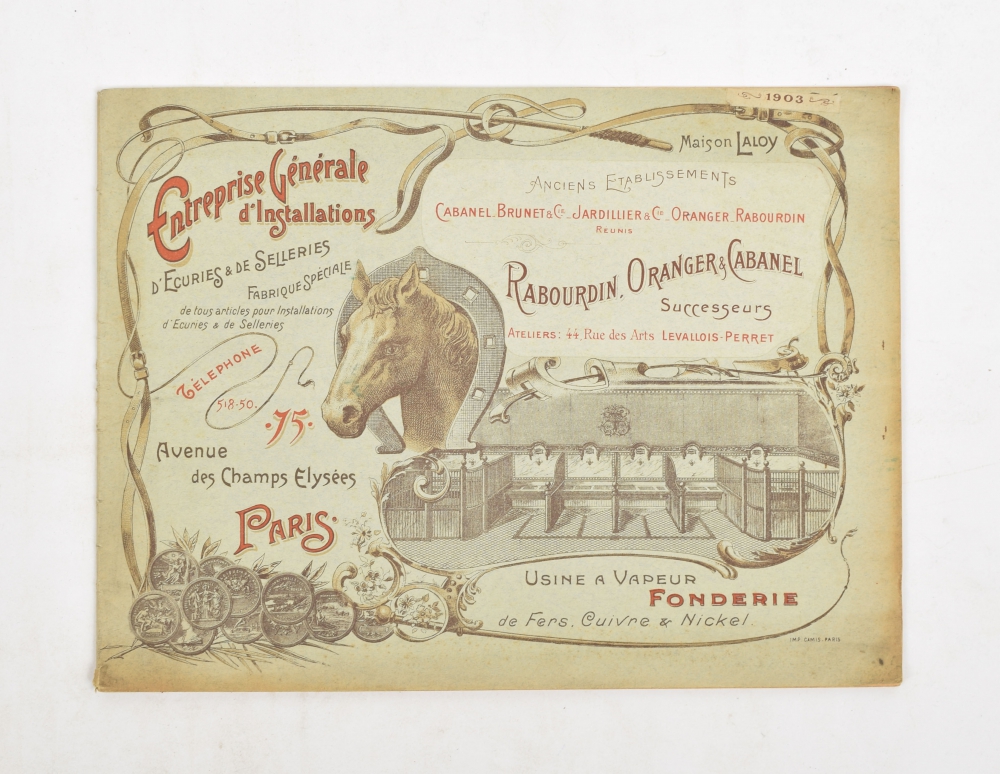 1903
Maison LALOY
Entreprise Générale
d'Installations
D'ECURIES & DE SELLERIES
FABRIQUE SPÉCIALE
de tous articles pour Installations
d'Ecuries & de Selleries
TÉLEPHONE
518-50.
75
Avenue
des Champs Elysées
PARIS
ANCIENS ETABLISSEMENTS
CABANEL_BRUNET & Cie_JARDILLIER & Cie_ORANGER_RABOURDIN
REUNIS
RABOURDIN, ORANGER & CABANEL
Successeurs
ATELIERS: 44, Rue des Arts LEVALLOIS-PERRET
USINE A VAPEUR
FONDERIE
de Fers, Cuivre & Nickel.
IMP. CAMIS. PARIS